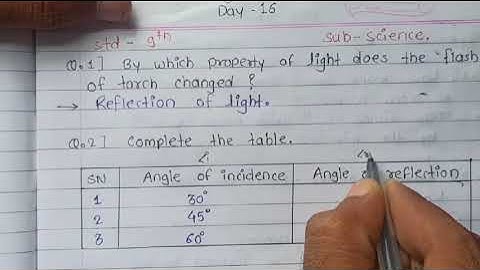 Day - 16
std - 9th
sub - science.
Q.1] By which property of light does the flash
of torch changed ?
→ Reflection of light.
Q.2] Complete the table.
∠i
SN Angle of incidence Angle reflection
1 30°
2 45°
3 60°